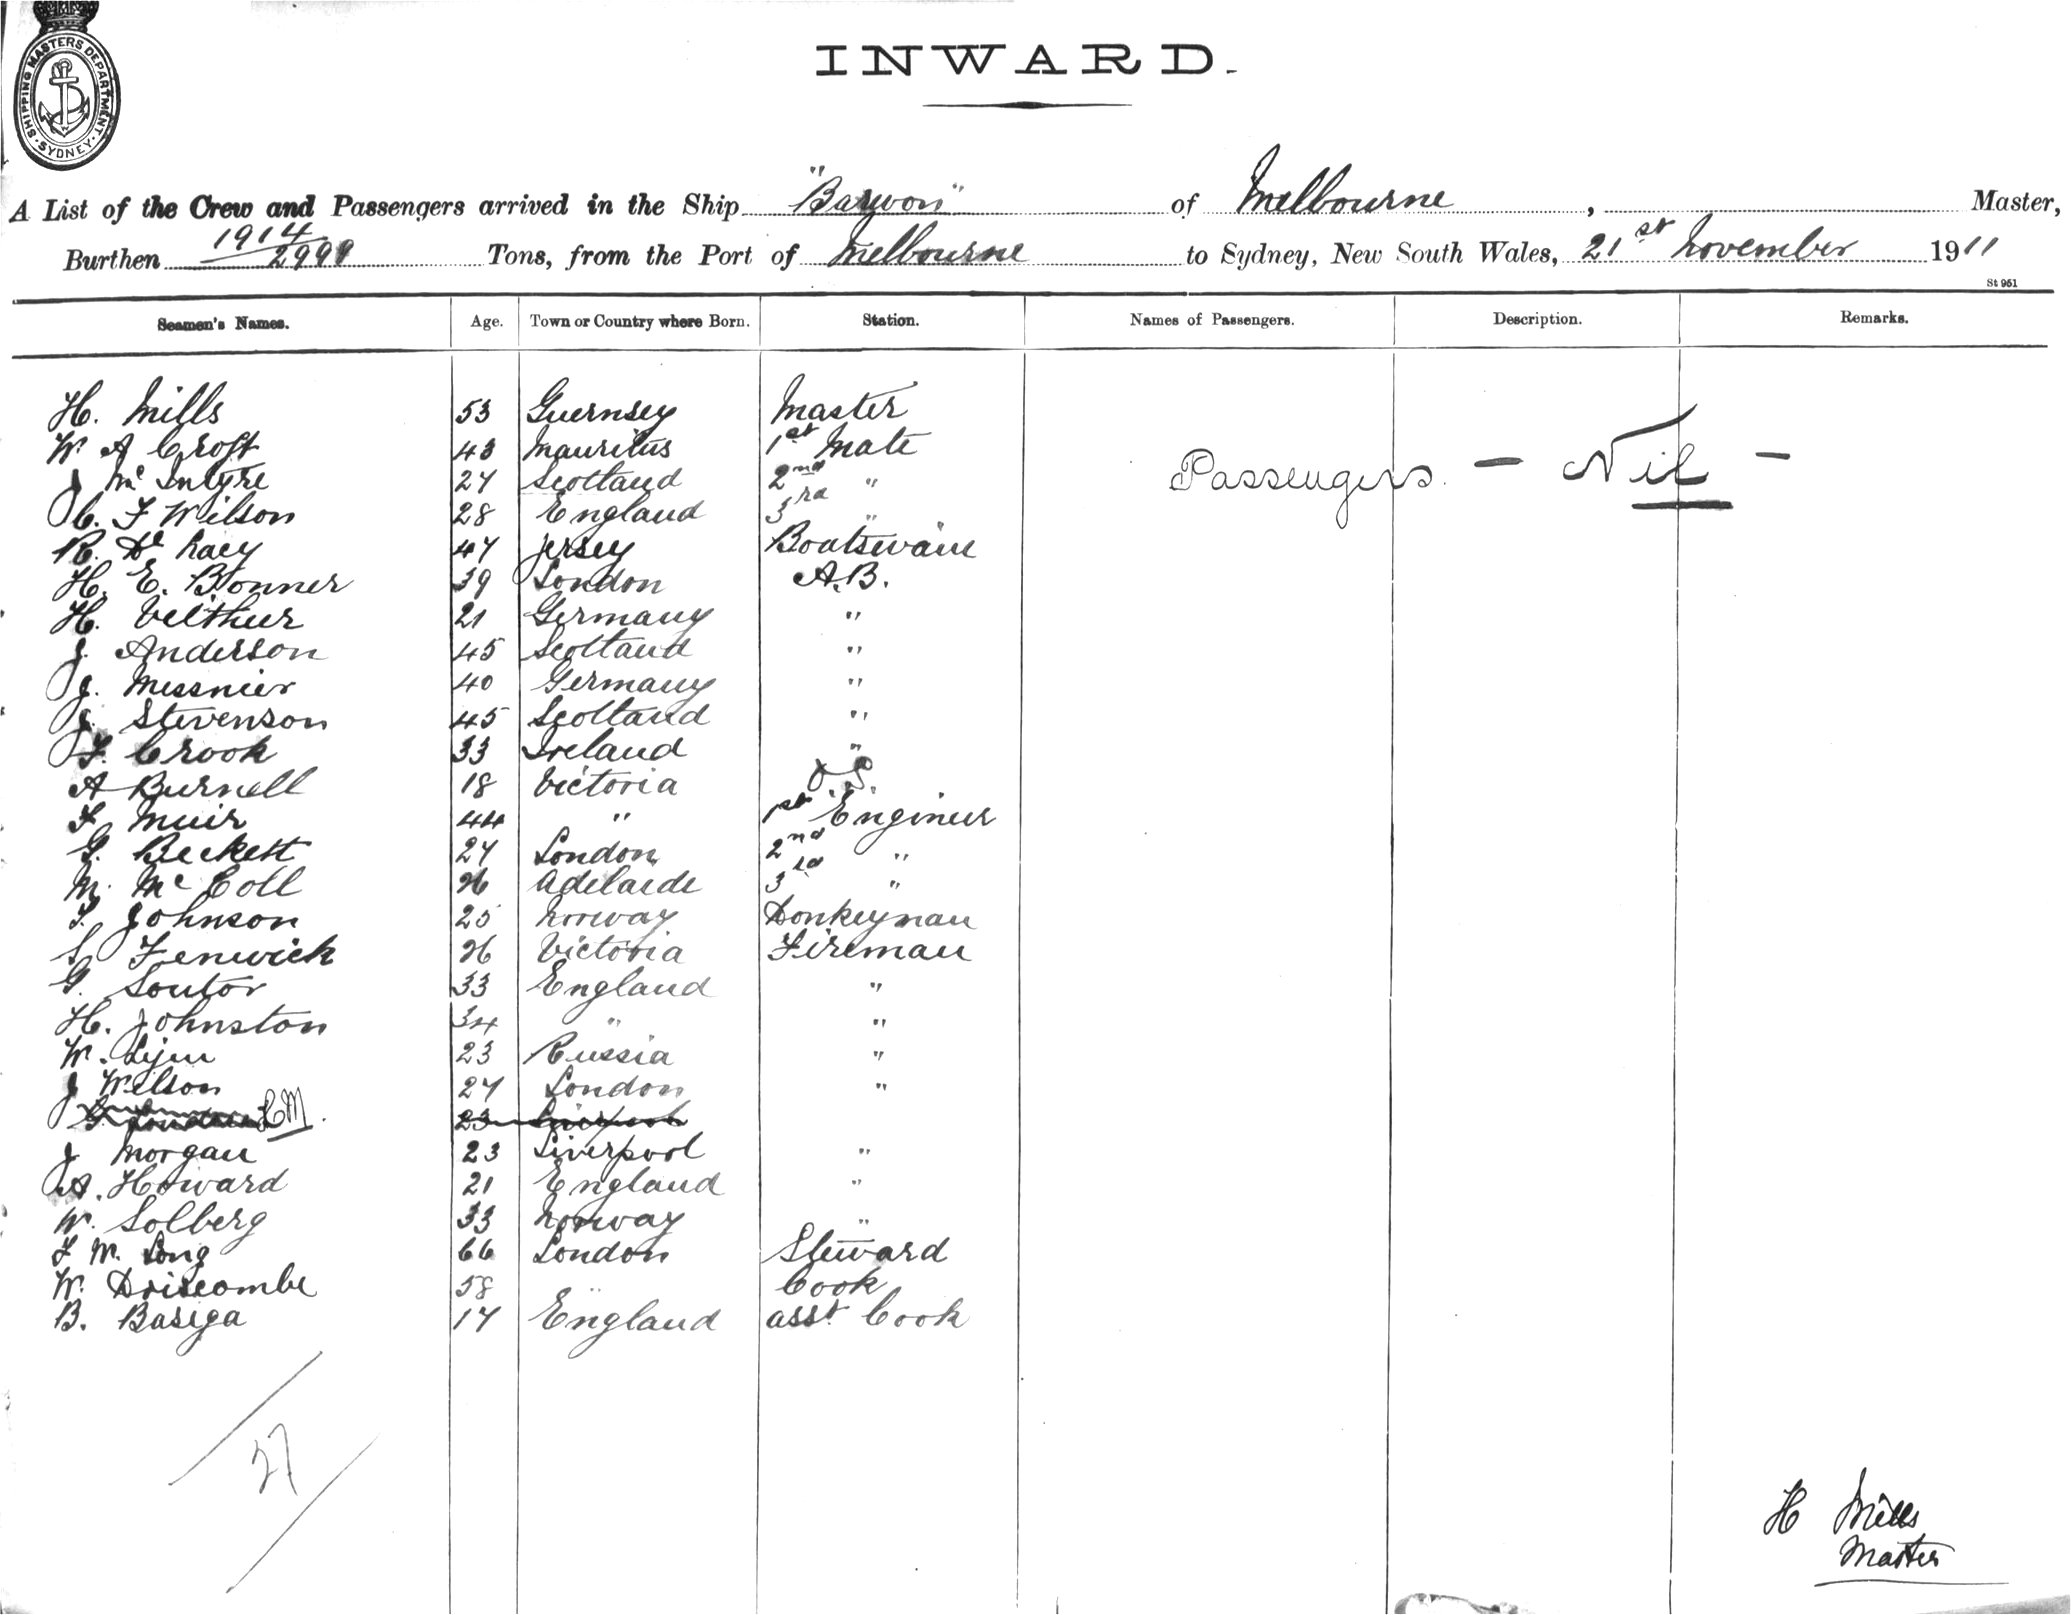 SHIPPING MASTERS DEPARTMENT · SYDNEY ·
INWARD.
A List of the Crew and Passengers arrived in the Ship "Barwon" of Melbourne, Master,
Burthen 1914/2991 Tons, from the Port of Melbourne to Sydney, New South Wales, 21st November 1911
St 961
Seamen's Names. Age. Town or Country where Born. Station. Names of Passengers. Description. Remarks.
H. Mills 53 Guernsey Master
W. A Croft 43 Mauritus 1st Mate
J Mc Intyre 27 Scotland 2nd "
Passengers - Nil -
C. F Wilson 28 England 3rd "
R. De Lacy 47 Jersey Boatswain
H. E. Bonner 39 London A.B.
H. Velthuer 21 Germany "
J. Anderson 45 Scotland "
J. Messnier 40 Germany "
J. Stevenson 45 Scotland "
F. Crook 33 Ireland "
A Burnell 18 Victoria O.S.
F Muir 44 " 1st Engineer
G. Beckett 27 London 2nd "
M. Mc Coll 26 Adelaide 3rd "
F. Johnson 25 Norway Donkeyman
S Fenwick 26 Victoria Fireman
G. Soutor 33 England "
H. Johnston 34 " "
W. 23 Russia "
J Wilson 27 London "
HM. 23 Liverpool
J Morgan 23 Liverpool "
A. Howard 21 England "
W. Solberg 33 Norway "
F M. Long 66 London Steward
W. Driscombe 58 " Cook
B. Basiga 17 England asst Cook
27
H Mills
Master